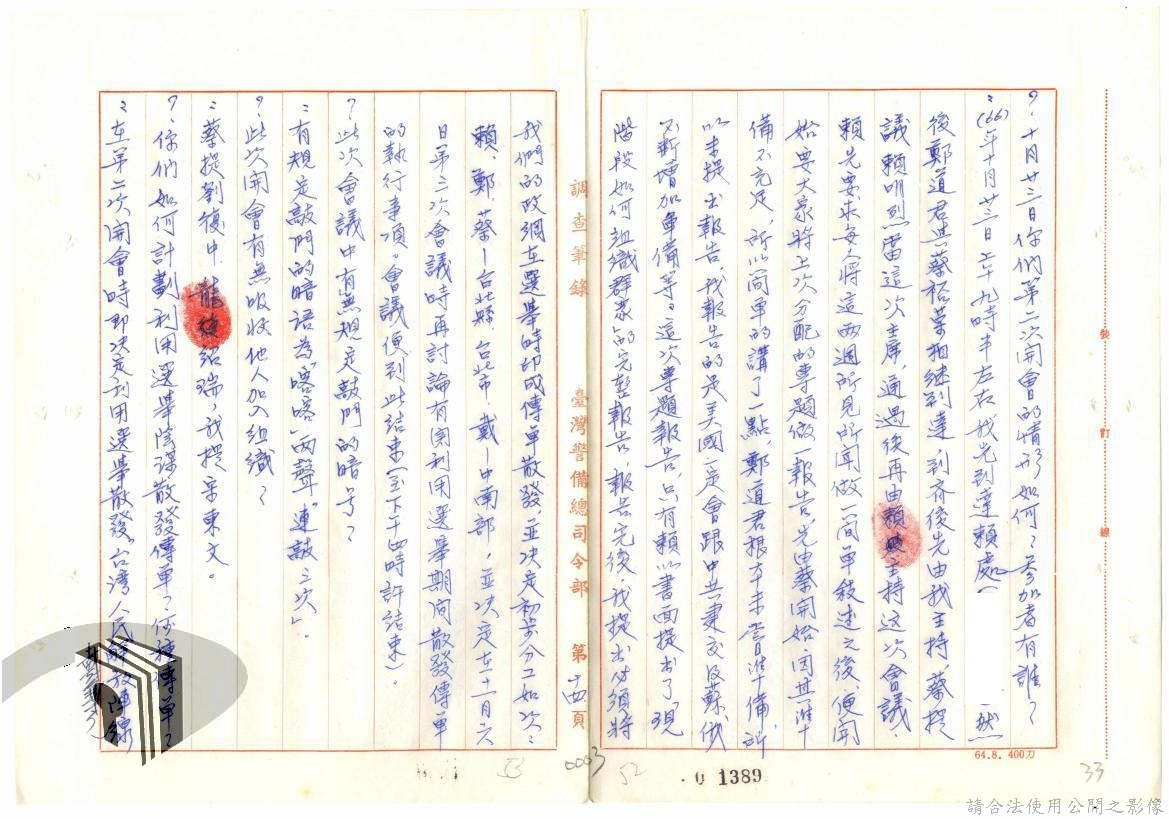 ？：十月廿三日你們第二次開會的情形如何？參加者有誰？
：(66)年十月廿三日上午九時半左右我先到達賴處（
然
後鄭道君與蔡裕荣相繼到達，到齊後先由我主持，蔡提
議賴明烈當這次主席，通過後再由賴
主持这次會議，
賴先要求每人將這兩週所見所聞做一簡單敍述之後，便開
始要大家將上次分配的專題做一報告，先由蔡開始，因其準
備不充足，所以簡單的講了一點，鄭道君根本未嘗準備，所
以未提出報告，我報告的是美國一定會跟中共秉交及蘇俄
不断增加軍備等。這次專題報告，只有賴以書面提出了「現
階段如何組織群眾」的完整報告，報告完後，我提出必須將
我們的政綱在選舉時印成傳單散發，並决定初步分工如次：
賴、鄭、蔡—台北縣、台北市，戴—中南部，並决定在十一月六
日第三次會議時再討論有関利用選舉期间散發傳單
的執行事項。會議便到此結束（至下午四時許結束）。
？：此次會議中有無規定敲門的暗号？
：有規定敲門的暗語為「喀喀」兩聲「連敲三次」。
？：此次開會有無吸收他人加入組織？
：蔡提劉復中、龍
紹瑞，我提宋東文。
？：你們如何計劃利用選舉陰謀散發傳單？何種傳單？
：在第二次開會時即决定利用選舉散發「台湾人民解放陣線
調查筆錄
臺灣警備總司令部
第十四頁
裝
訂
線
64.8. 400刀
33
52
53
0003
·0 1389
請合法使用公開之影像